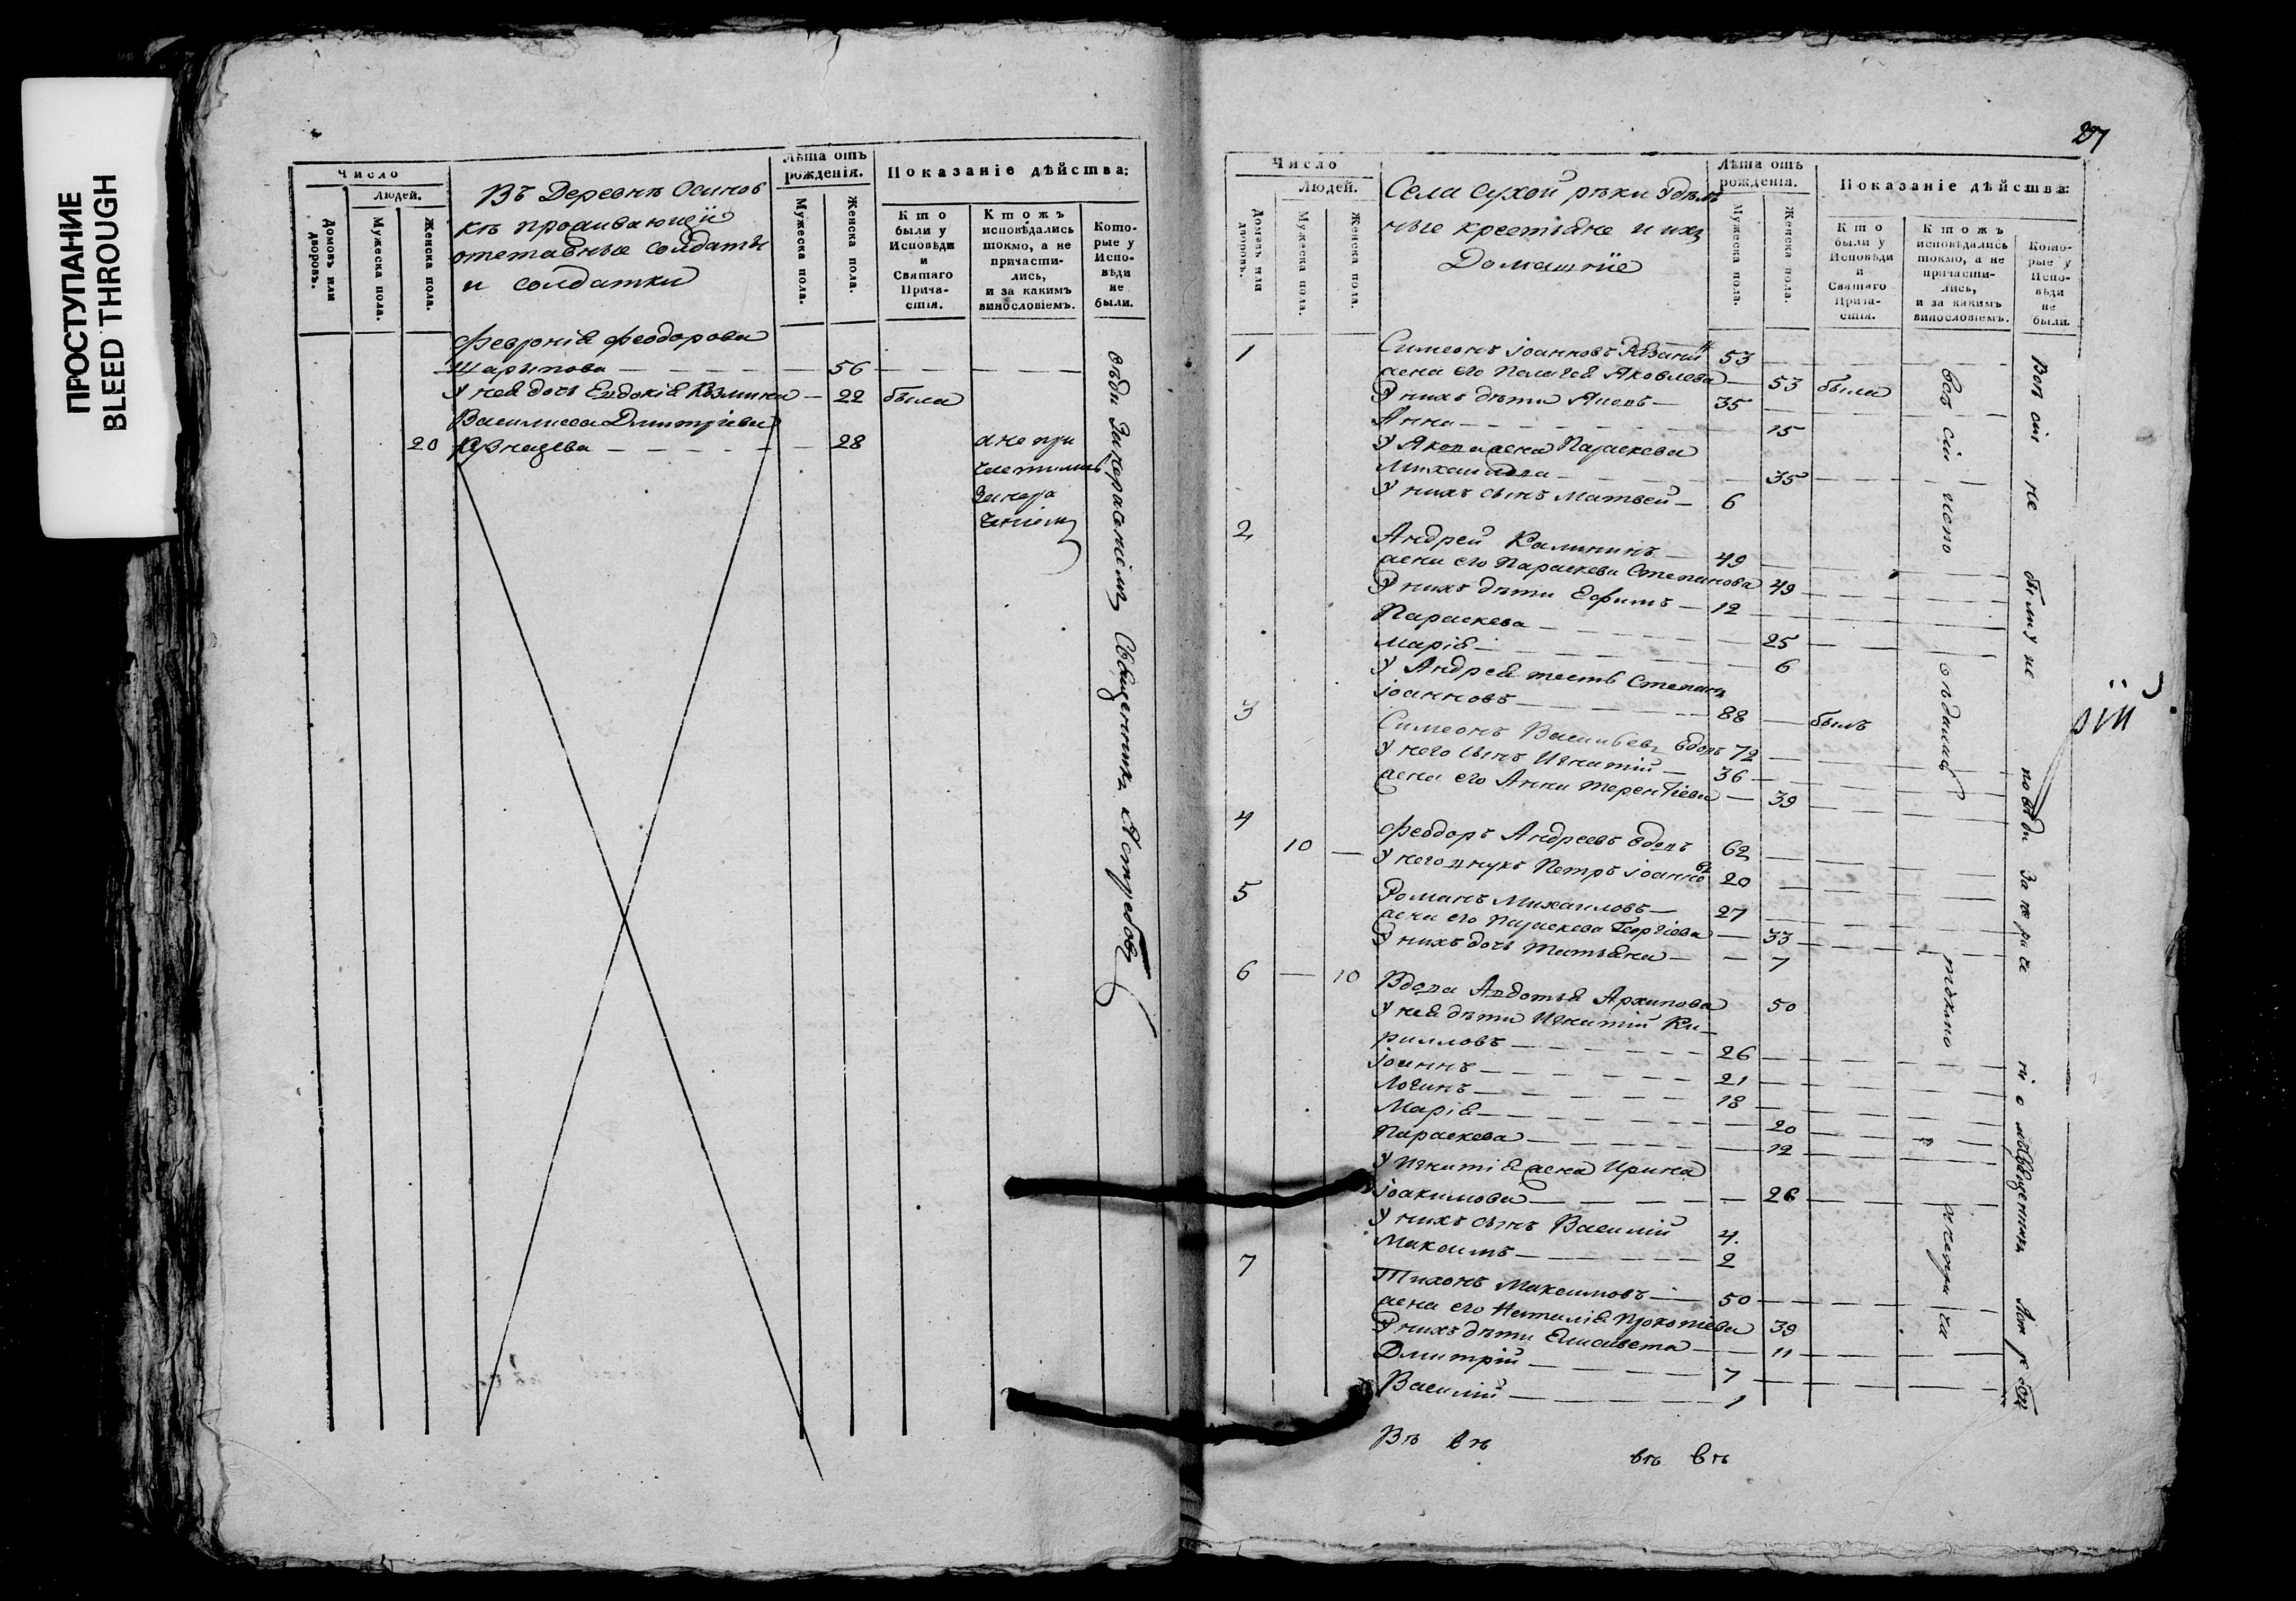 ПРОСТУПАНИЕ
BLEED THROUGH
Число
Людей.
Домовъ или дворовъ.
Мужеска пола.
Женска пола.
Въ Деревнѣ Осинов
кѣ проживающїи
отставные солдаты
и солдатки
Лѣта отъ рожденія.
Мужеска пола.
Женска пола.
Показаніе дѣйства:
Кто были у Исповѣди и Святаго Причастія.
Ктожъ исповѣдались токмо, а не причастились, и за какимъ винословіемъ.
Которые у Исповѣди не были.
Феѵронія Феодорова
Шарыпова — — — — 56 — — —
У нея дочь Евдокія Козмина — 22 была
Василисса Дмитріева
20 — — — — 28
а не при
частились
за нера
ченіемъ
Священникъ Ястребовъ
27
Число
Людей.
Домовъ или дворовъ.
Мужеска пола.
Женска пола.
Села Сухой рѣки удѣль
ные крестьяне и ихъ
Домашніе
Лѣта отъ рожденія.
Мужеска пола.
Женска пола.
Показаніе дѣйства:
Кто были у Исповѣди и Святаго Причастія.
Ктожъ исповѣдались токмо, а не причастились, и за какимъ винословіемъ.
Которые у Исповѣди не были.
1 Симеонъ Іоанновъ 53
жена его Пелагея Яковлева — 53 были
У нихъ дѣти Яковъ — 35
Анна — — — 15
У Якова жена Параскева
Михайлова — — — 35
У нихъ сынъ Матвей — 6
2 Андрей Калининъ — 49
жена его Параскева Степанова 49
У нихъ дѣти Ефимъ — 12
Параскева — — 25
Марія — — 6
У Андрея тесть Степанъ
Іоанновъ — — 88 — былъ
3 Симеонъ Васильевъ вдовъ 72
У него сынъ Игнатій — 36
жена его Анна Терентіева — 39
4 Феодоръ Андреевъ вдовъ 62
10 — У него внукъ Петръ Іоанновъ 20
5 Романъ Михаиловъ — 27
жена его Параскева Георгіева — 33
У нихъ дочь Татьяна — — 7
6 — 10 Вдова Авдотья Архипова 50
У нея дѣти Игнатій Ки-
рилловъ — — — 26
Іоаннъ — — — 21
Логинъ — — — 18
Марія — — — 20
Параскева — — — 12
У Игнатія жена Ирина
Іоакимова — — — 26
У нихъ сынъ Василій 4
Максимъ — — — 2
7 Тихонъ Максимовъ — 50
жена его Наталія Прокопіева 39
У нихъ дѣти Елисавета — 11
Дмитрій — — — 7
Василій — — — 1
всѣ сіи испо вѣдались токмо а не при ча
Всѣ сіи не были у ис повѣди за не ра че ні е мъ Священникъ Яст ре бовъ
Въ въ въ въ